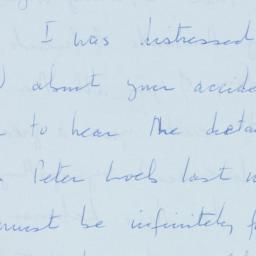 I was distressed
about your accide
to hear the deta
Peter Loeb last n
must be infinitely f